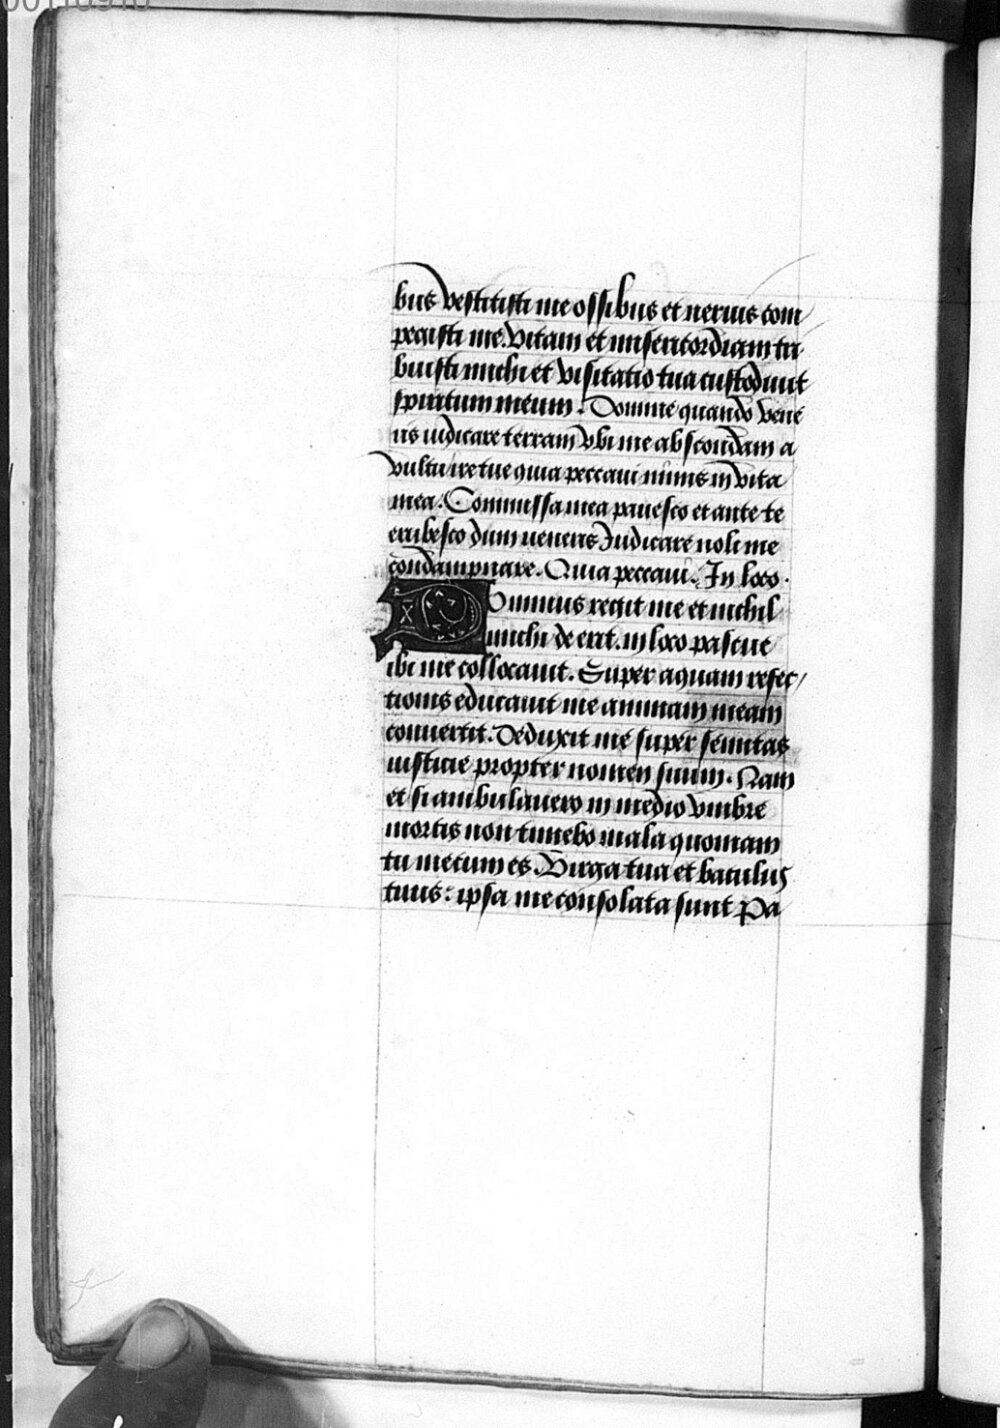 00110910
bus vestitisti me ossibus et neruis com
pegisti me. Vitam et misericordiam tri
buisti michi et visitatio tua custodiuit
spiritum meum. Domine quando vene
ris iudicare terram vbi me abscondam a
vultu ire tue quia peccaui nimis in vita
mea. Commissa mea pauesco et ante te
erubesco dum ueneris Iudicare noli me
condampnare. Quia peccaui. In loco.
Dominus regit me et nichil
michi de erit. in loco pascue
ibi me collocauit. Super aquam refec/
tionis educauit me animam meam
conuertit. Deduxit me super semitas
iusticie propter nomen suum. Nam
et si ambulauero in medio vmbre
mortis non timebo mala quoniam
tu mecum es. Virga tua et baculus
tuus: ipsa me consolata sunt Pa